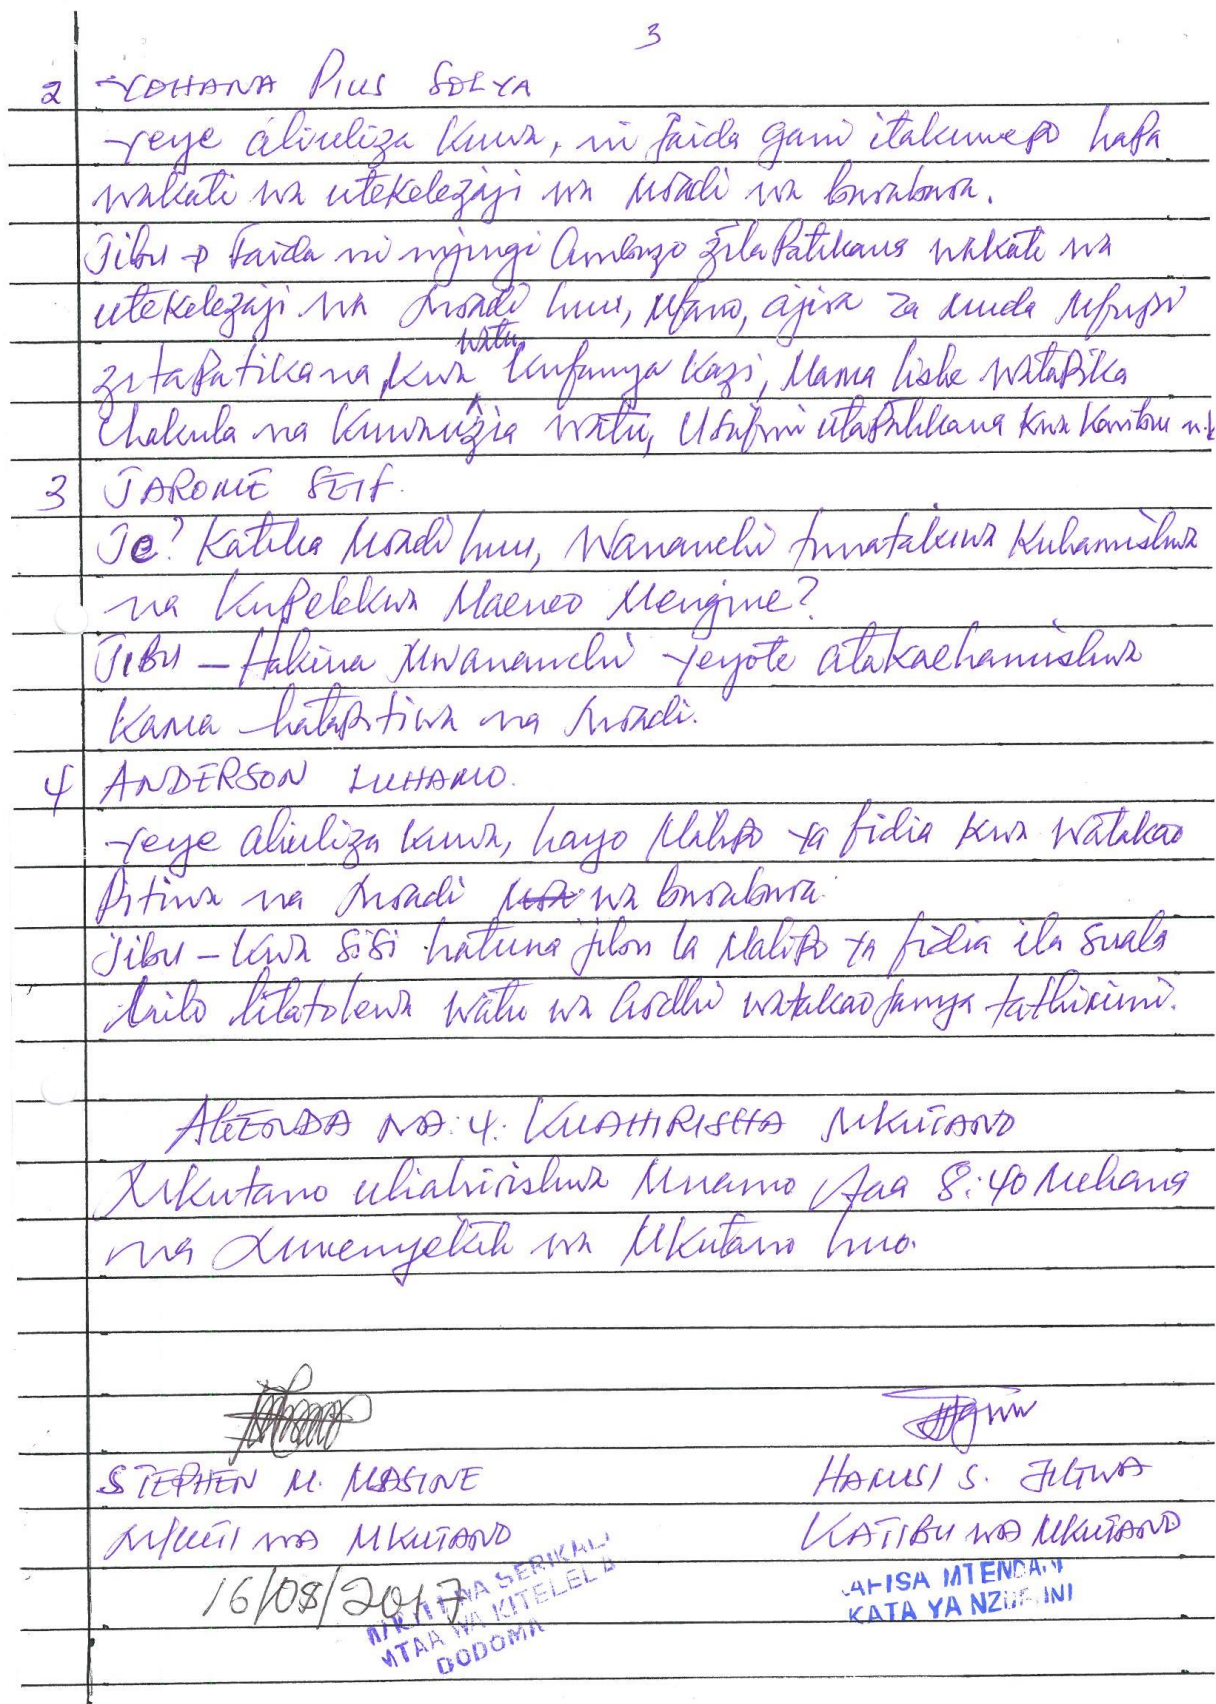 3
2 YOHANA PIUS SOLYA
Yeye aliuliza kuwa, ni faida gani itakuwepo hapa
wakati wa utekelezaji wa mradi wa bwawa.
Jibu → Faida ni nyingi ambazo zitapatikana wakati wa
utekelezaji wa mradi huu, Mfano, ajira za muda Mfupi
zitapatikana, kwa watu kufanya kazi, Mama lishe watapika
Chakula na kuwauzia watu, Usafiri utapatikana kwa karibu n.k
3 JAROME SEIF.
Je? Katika Mradi huu, Wananchi tunatakiwa kuhamishwa
na kupelekwa Maeneo Mengine?
JIBU – Hakuna Mwananchi yeyote atakaehamishwa
kama hatapitiwa na Mradi.
4 ANDERSON LUHAMO.
Yeye aliuliza kuwa, hayo Malipo ya fidia kwa watakao
pitiwa na Mradi wa
Jibu – Kwa sisi hatuna jibu la Malipo ya fidia ila suala
hilo litatolewa watu wa Ardhi watakaofanya tathimini.
AGENDA NA: 4: KUAHIRISHA MKUTANO
Mkutano uliahirishwa Mnamo Saa 8:40 Mchana
na Mwenyekiti wa Mkutano huo.
STEPHEN M. MASINE
M/KITI WA MKUTANO
16/08/2017
M/KITI WA SERIKALI
MTAA WA KITELELA
DODOMA
HAMISI S. JILIWA
KATIBU WA MKUTANO
AFISA MTENDAJI
KATA YA NZUGUNI